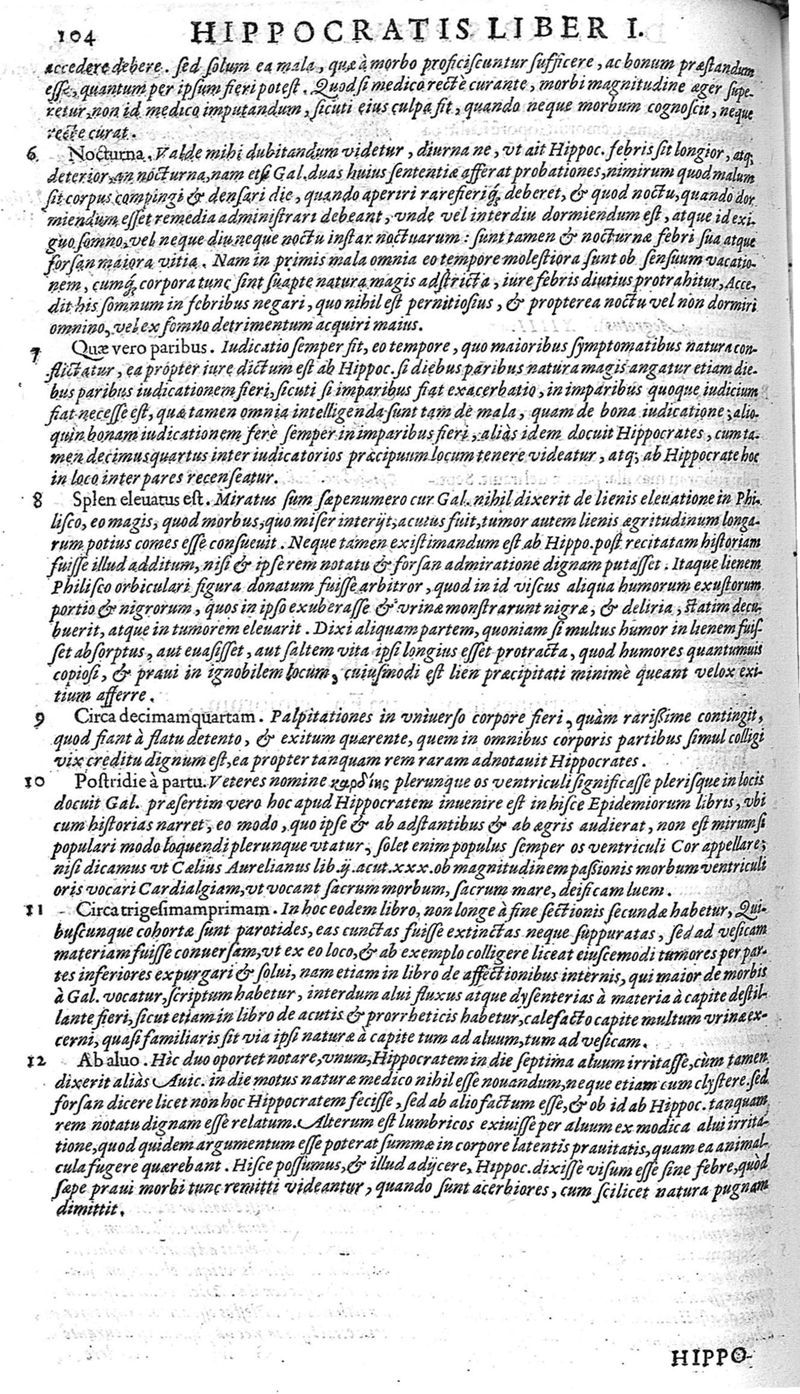 104 HIPPOCRATIS LIBER I.
accedere debere. sed solum ea mala, quæ à morbo proficiscuntur sufficere, ac bonum præstandum
esse, quantum per ipsum fieri potest. Quod si medico rectè curante, morbi magnitudine æger supe-
retur, non id medico imputandum, sicuti eius culpa fit, quando neque morbum cognoscit, neque
rectè curat.
6 Nocturna. Valde mihi dubitandum videtur, diurna ne, vt ait Hippoc. febris sit longior, atq;
deterior, an nocturna, nam etsi Gal. duas huius sententiæ afferat probationes, nimirum quod malum
sit corpus compingi & densari die, quando aperiri rarefieriq́; deberet, & quod noctu, quando dor
miendum esset remedia administrari debeant, vnde vel interdiu dormiendum est, atque id exi-
guo somno, vel neque diu neque noctu instar noctuarum: sunt tamen & nocturnæ febri sua atque
forsan maiora vitia. Nam in primis mala omnia eo tempore molestiora sunt ob sensuum vacatio-
nem, cumq́; corpora tunc sint suapte natura magis adstricta, iure febris diutius protrahitur, Acce-
dit his somnum in febribus negari, quo nihil est pernitiosius, & propterea noctu vel non dormiri
omnino, vel ex somno detrimentum acquiri maius.
7 Quæ vero paribus. Iudicatio semper fit, eo tempore, quo maioribus symptomatibus natura con-
flictatur, ea propter iure dictum est ab Hippoc. si diebus paribus natura magis angatur etiam die-
bus paribus iudicationem fieri, sicuti si imparibus fiat exacerbatio, in imparibus quoque iudicium
fiat necesse est, quæ tamen omnia intelligenda sunt tam de mala, quam de bona iudicatione; alio-
quin bonam iudicationem ferè semper in imparibus fieri, aliàs idem docuit Hippocrates, cum ta-
men decimusquartus inter iudicatorios præcipuum locum tenere videatur, atq; ab Hippocrate hoc
in loco inter pares recenseatur.
8 Splen eleuatus est. Miratus sum sæpenumero cur Gal. nihil dixerit de lienis eleuatione in Phi-
lisco, eo magis, quod morbus, quo miser interijt, acutus fuit, tumor autem lienis ægritudinum longa-
rum potius comes esse consueuit. Neque tamen existimandum est ab Hippo. post recitatam historiam
fuisse illud additum, nisi & ipse rem notatu & forsan admiratione dignam putasset. Itaque lienem
Philisco orbiculari figura donatum fuisse arbitror, quod in id viscus aliqua humorum exustorum
portio & nigrorum, quos in ipso exuberasse & vrinæ monstrarunt nigræ, & deliria, statim decu-
buerit, atque in tumorem eleuarit. Dixi aliquam partem, quoniam si multus humor in lienem fuis-
set absorptus, aut euasisset, aut saltem vita ipsi longius esset protracta, quod humores quantumuis
copiosi, & praui in ignobilem locum, cuiusmodi est lien præcipitati minimè queant velox exi-
tium afferre.
9 Circa decimamquartam. Palpitationes in vniuerso corpore fieri, quàm rarissime contingit,
quod fiant à flatu detento, & exitum quærente, quem in omnibus corporis partibus simul colligi
vix creditu dignum est, ea propter tanquam rem raram adnotauit Hippocrates.
10 Postridie à partu. Veteres nomine καρδίης plerunque os ventriculi significasse plerisque in locis
docuit Gal. præsertim vero hoc apud Hippocratem inuenire est in hisce Epidemiorum libris, vbi
cum historias narret, eo modo, quo ipse & ab adstantibus & ab ægris audierat, non est mirum si
populari modo loquendi plerunque vtatur, solet enim populus semper os ventriculi Cor appellare;
nisi dicamus vt Cælius Aurelianus lib. ij. acut. xxx. ob magnitudinem passionis morbum ventriculi
oris vocari Cardialgiam, vt vocant sacrum morbum, sacrum mare, deificam luem.
11 Circa trigesimamprimam. In hoc eodem libro, non longe à fine sectionis secundæ habetur, Qui-
buscunque cohortæ sunt parotides, eas cunctas fuisse extinctas neque suppuratas, sed ad vesicam
materiam fuisse conuersam, vt ex eo loco, & ab exemplo colligere liceat eiuscemodi tumores per par-
tes inferiores expurgari & solui, nam etiam in libro de affectionibus internis, qui maior de morbis
à Gal. vocatur, scriptum habetur, interdum alui fluxus atque dysenterias à materia à capite destil-
lante fieri, sicut etiam in libro de acutis & prorrheticis habetur, calefacto capite multum vrinæ ex-
cerni, quasi familiaris sit via ipsi naturæ à capite tum ad aluum, tum ad vesicam.
12 Ab aluo. Hic duo oportet notare, vnum, Hippocratem in die septima aluum irritasse, cùm tamen
dixerit aliàs Auic. in die motus naturæ medico nihil esse nouandum, neque etiam cum clystere sed
forsan dicere licet non hoc Hippocratem fecisse, sed ab alio factum esse, & ob id ab Hippoc. tanquam
rem notatu dignam esse relatum. Alterum est lumbricos exiuisse per aluum ex modica alui irrita-
tione, quod quidem argumentum esse poterat summæ in corpore latentis prauitatis, quam ea animal-
cula fugere quærebant. Hisce possumus, & illud adijcere, Hippoc. dixisse visum esse sine febre, quòd
sæpe praui morbi tunc remitti videantur, quando sunt acerbiores, cum scilicet natura pugnam
dimittit.
HIPPO-